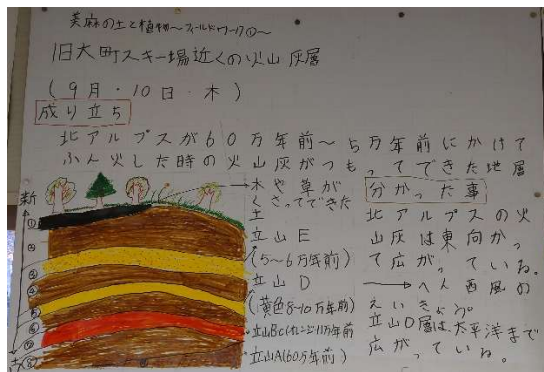 美麻の土と植物〜フィールドワーク①〜
旧大町スキー場近くの火山灰層
(9月・10日・木)
成り立ち
北アルプスが60万年前〜5万年前にかけて
ふん火した時の火山灰がつもってできた地層
新
①
②
③
④
⑤
⑥
⑦
⑧
古
木や草が
くさってできた
土
立山E
(5〜6万年前)
立山D
(黄色8-10万年前)
立山Bc(オレンジ-11万年前
立山A(60万年前)
分かった事
北アルプスの火
山灰は東向かっ
て広がっている。
→へん西風の
えいきょう。
立山D層は、太平洋まで
広がっている。